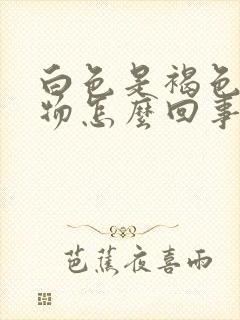 白色是褐色
物怎麼回事
芭蕉夜喜雨